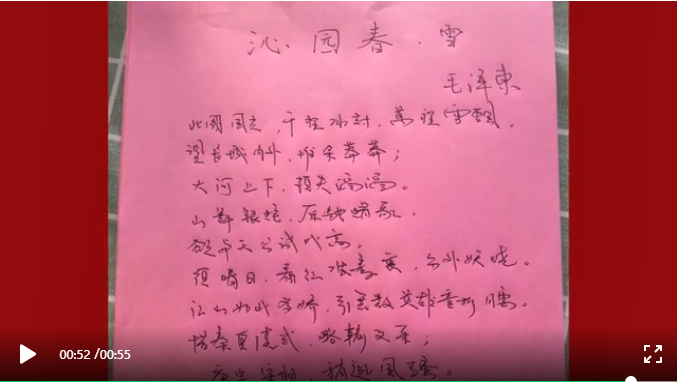 沁园春.雪
毛泽東
千程冰封,萬程雪飄,
望长城内外,惟余莽莽;
大河上下,顿失滔滔。
山舞银蛇,原驰
欲与天公试比高。
须晴日,看红装素裹,分外妖娆。
江山如此多娇,引無数英雄竞折腰。
惜秦皇漢武,略输文采;
唐宗宋祖,稍逊風骚。
00:52 /00:55